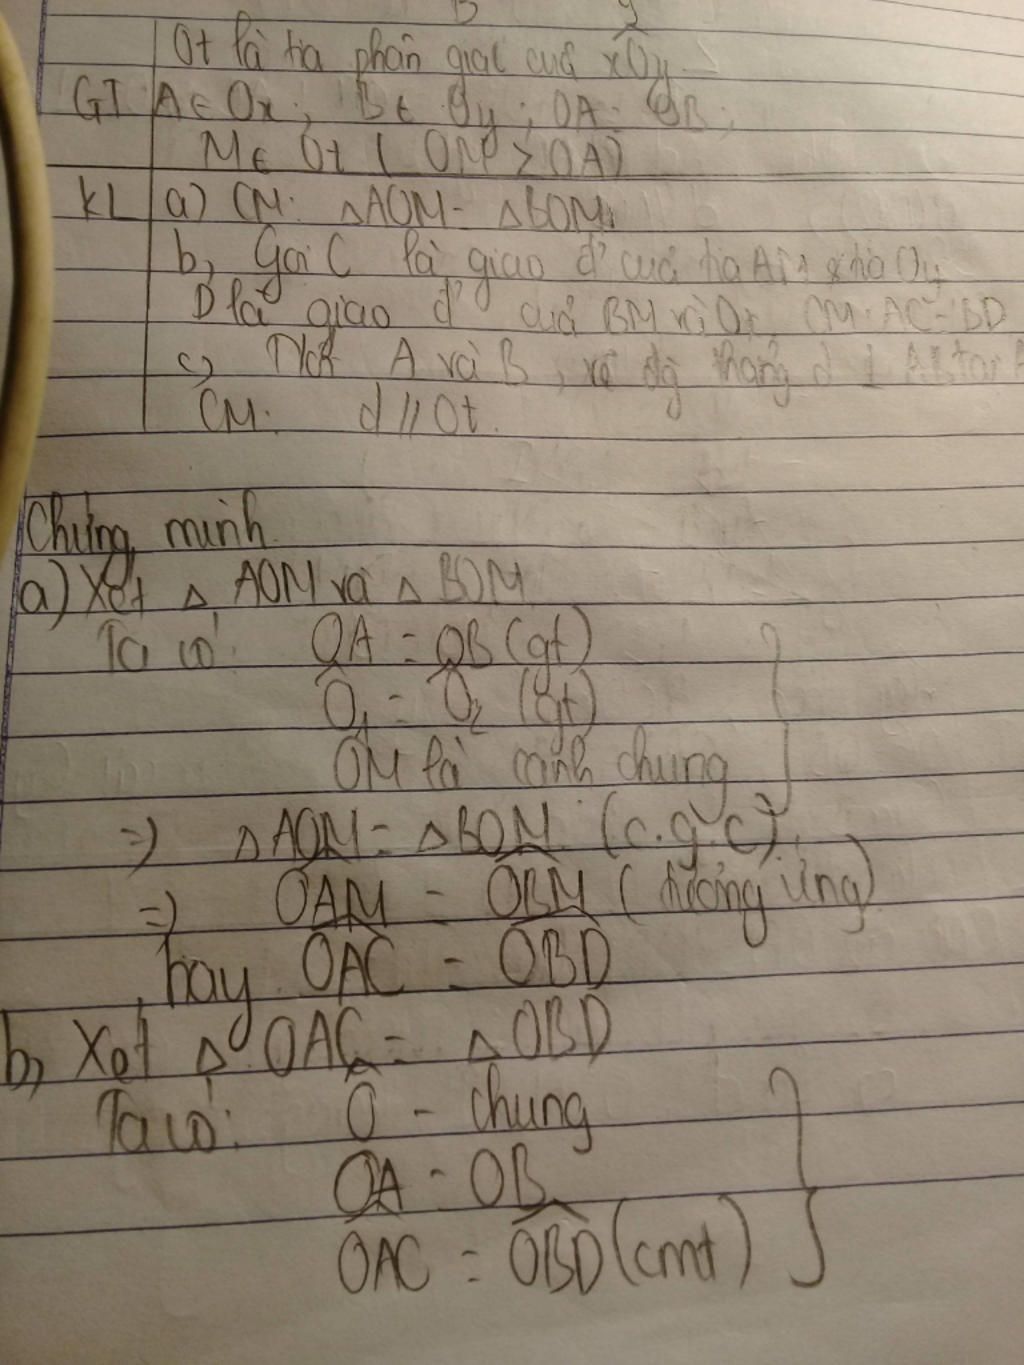 B y
Ot là tia phân giác cuả xOy
GT A ∈ Ox ; B ∈ Oy ; OA = OB ;
M ∈ Ot ( OM > OA )
KL a) CM: △AOM = △BOM
b, Gọi C là giao đ' cuả tia AM & tia Oy
D là giao đ' cuả BM và Ox CM: AC = BD
c, Nối A và B , vẽ đg thẳng d ⊥ AB tại A
CM: d // Ot.
Chứng minh
a) Xét △ AOM và △ BOM
Ta có: OA = OB (gt)
Ô1 = Ô2 (gt)
OM là cạnh chung
=) △AOM = △BOM (c.g.c)
=) OAM = OBM ( tương ứng)
hay OAC = OBD
b, Xét △ OAC = △ OBD
Ta có: Ô - chung
OA = OB
OAC = OBD (cmt)